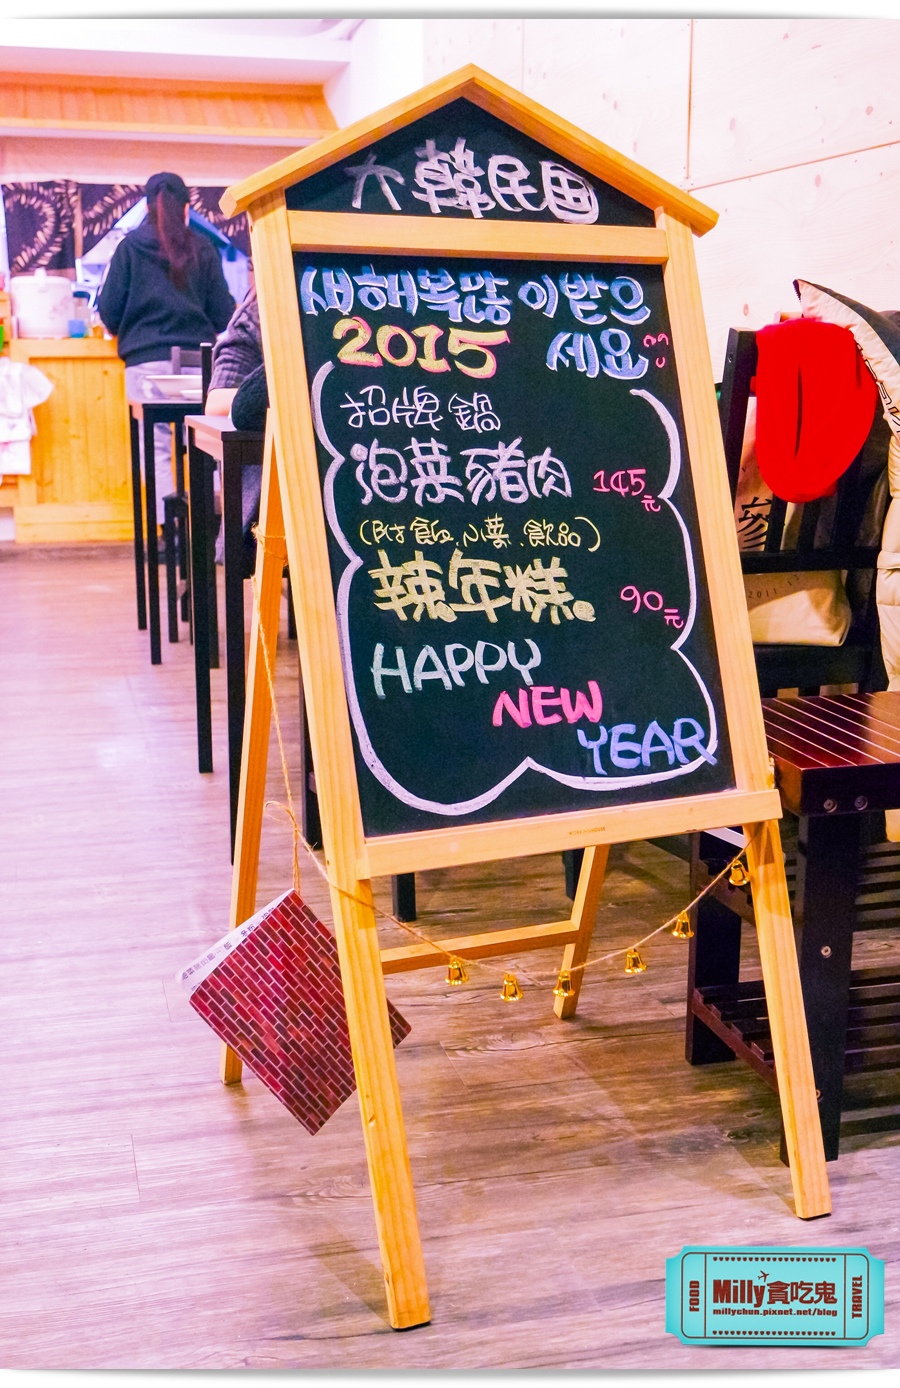 大韓民国
새해복많이받으
2015 세요
招牌鍋
泡菜豬肉 145元
(附飯.小菜.飲品)
辣年糕 90元
HAPPY
NEW
YEAR
FOOD
Milly貪吃鬼
millychun.pixnet.net/blog
TRAVEL